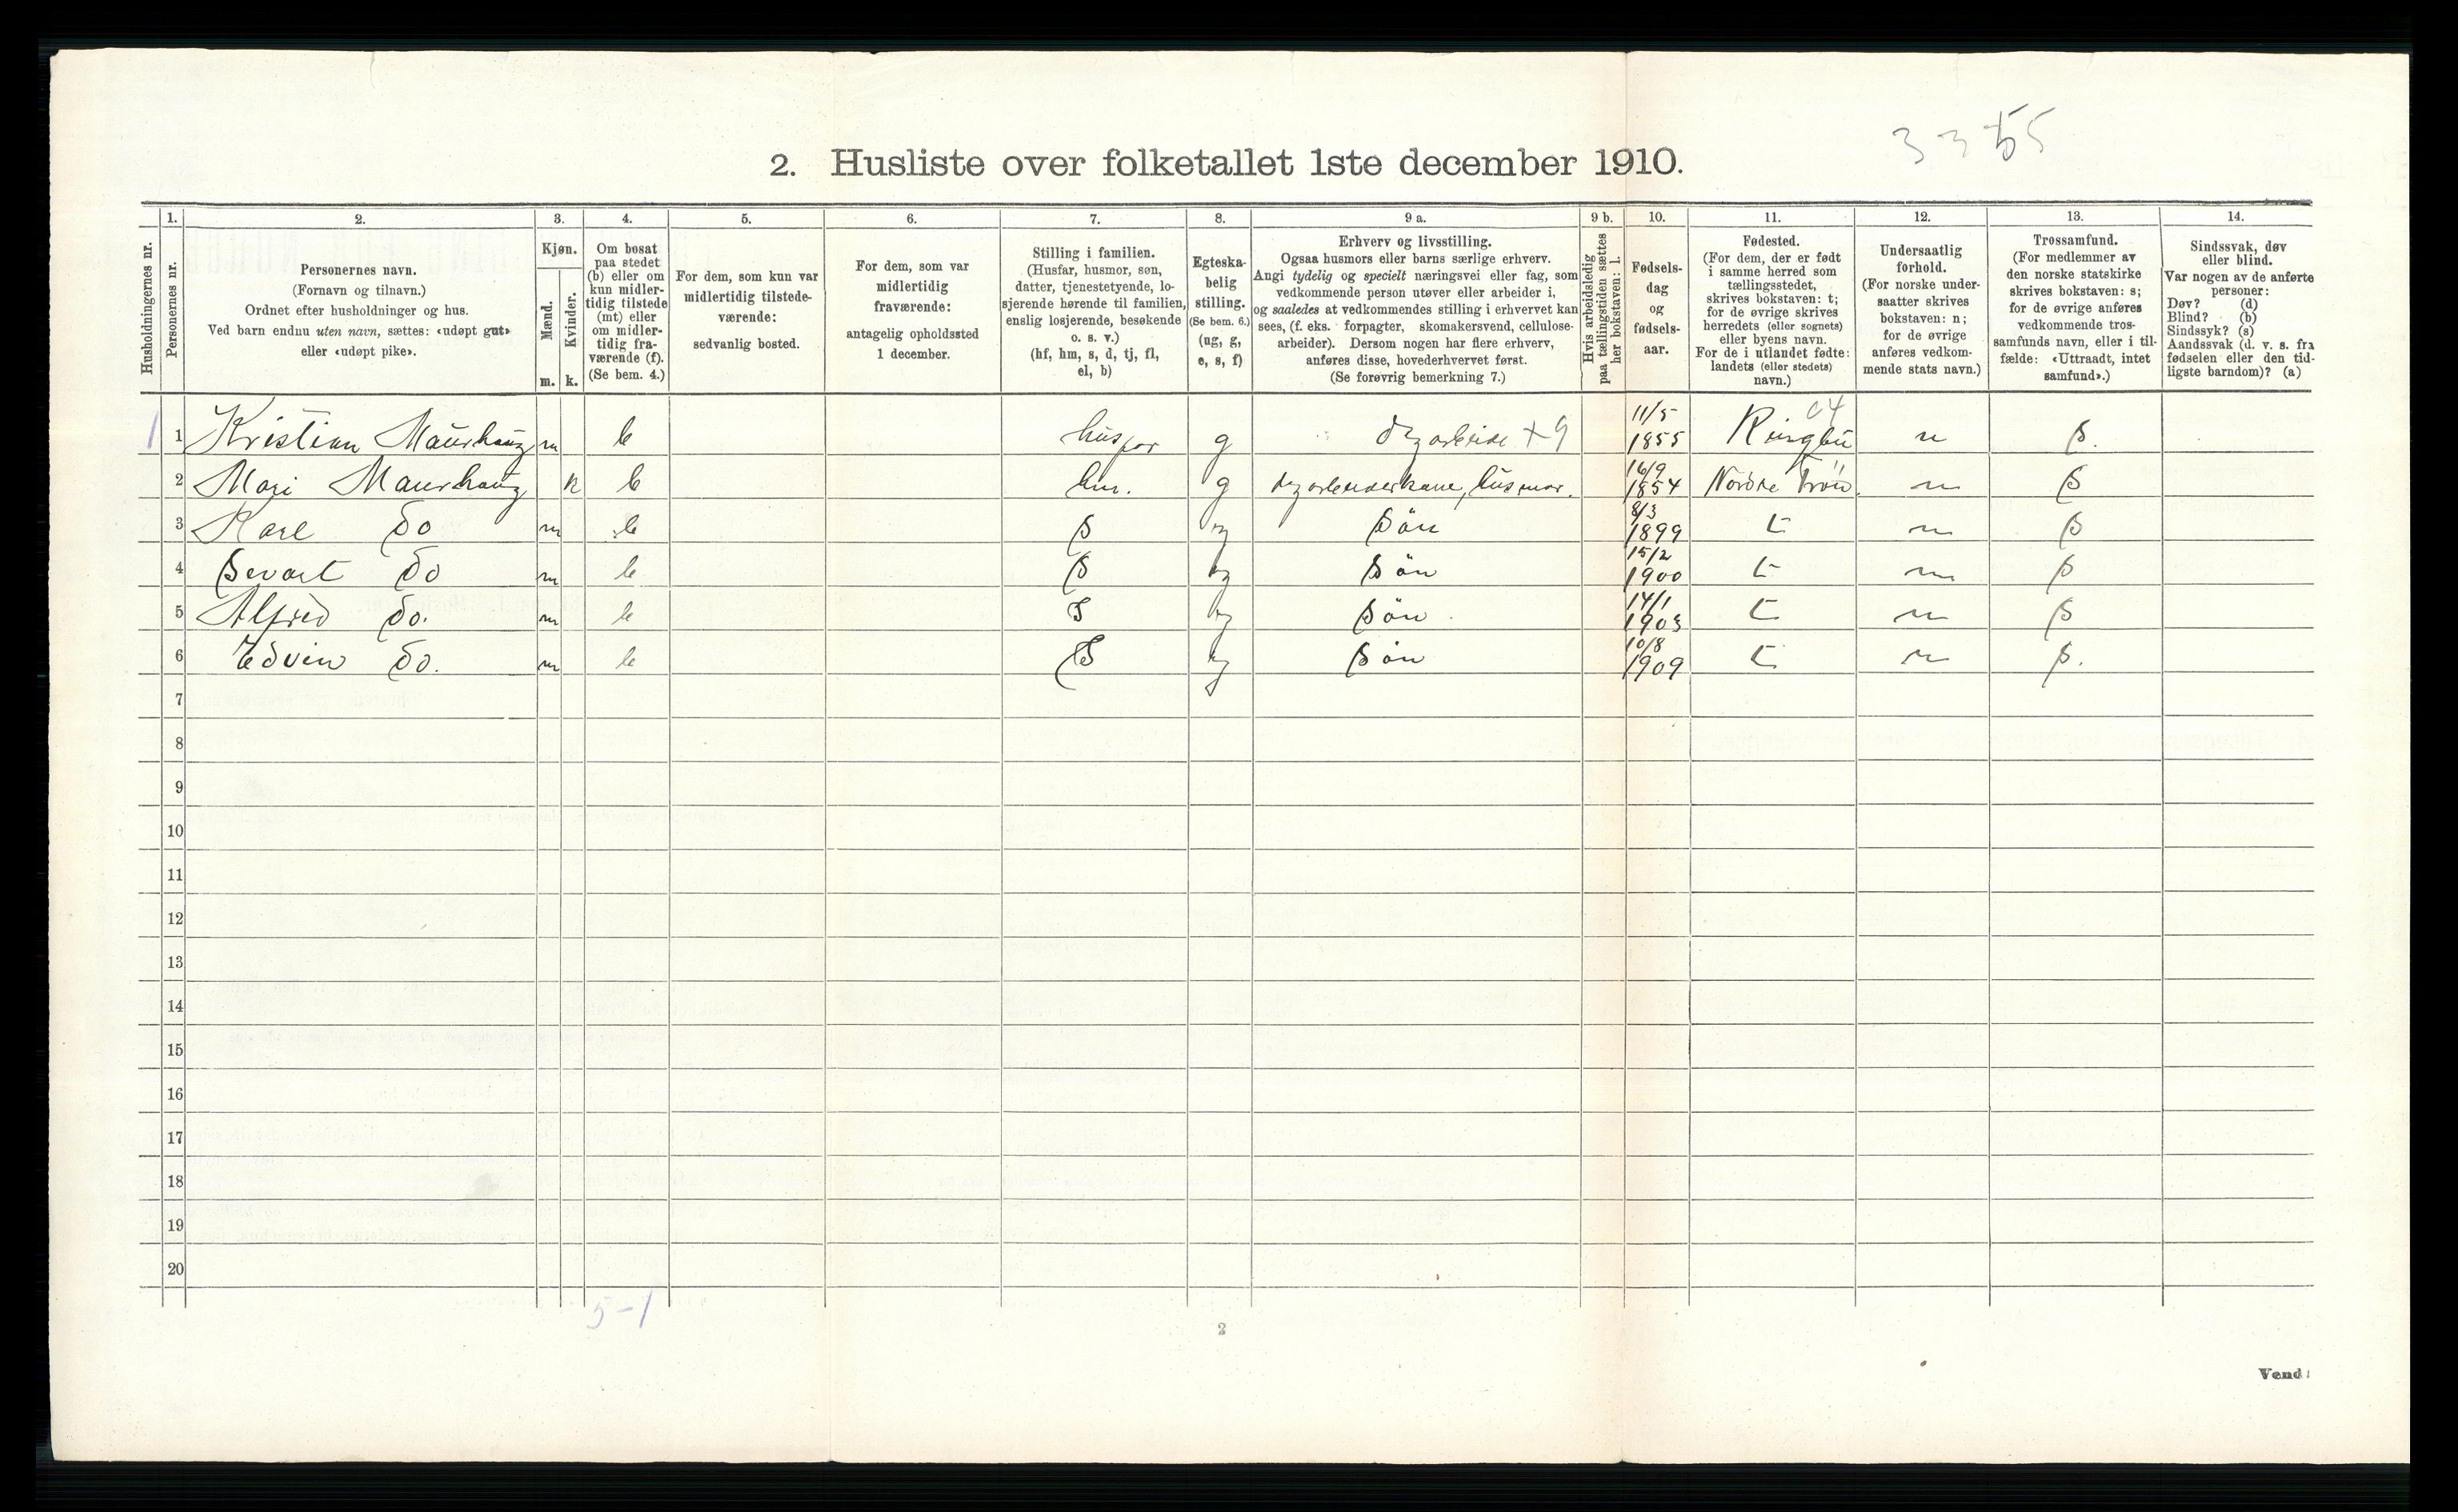 3 3 55
2. Husliste over folketallet 1ste december 1910.
Husholdningernes nr.
1. Personernes nr.
2. Personernes navn.
(Fornavn og tilnavn.)
Ordnet efter husholdninger og hus.
Ved barn endnu uten navn, sættes: «udøpt gut»
eller «udøpt pike».
3. Kjøn.
Mænd. m.
Kvinder. k.
4. Om bosat
paa stedet
(b) eller om
kun midler-
tidig tilstede
(mt) eller
om midler-
tidig fra-
værende (f).
(Se bem. 4.)
5. For dem, som kun var
midlertidig tilstede-
værende:
sedvanlig bosted.
6. For dem, som var
midlertidig
fraværende:
antagelig opholdssted
1 december.
7. Stilling i familien.
(Husfar, husmor, søn,
datter, tjenestetyende, lo-
sjerende hørende til familien,
enslig losjerende, besøkende
o. s. v.)
(hf, hm, s, d, tj, fl,
el, b)
8. Egteska-
belig
stilling.
(Se bem. 6.)
(ug, g,
e, s, f)
9 a. Erhverv og livsstilling.
Ogsaa husmors eller barns særlige erhverv.
Angi tydelig og specielt næringsvei eller fag, som
vedkommende person utøver eller arbeider i,
og saaledes at vedkommendes stilling i erhvervet kan
sees, (f. eks. forpagter, skomakersvend, cellulose-
arbeider). Dersom nogen har flere erhverv,
anføres disse, hovederhvervet først.
(Se forøvrig bemerkning 7.)
9 b. Hvis arbeidsledig
paa tællingstiden sættes
her bokstaven: l.
10. Fødsels-
dag
og
fødsels-
aar.
11. Fødested.
(For dem, der er født
i samme herred som
tællingsstedet,
skrives bokstaven: t;
for de øvrige skrives
herredets (eller sognets)
eller byens navn.
For de i utlandet fødte:
landets (eller stedets)
navn.)
12. Undersaatlig
forhold.
(For norske under-
saatter skrives
bokstaven: n;
for de øvrige
anføres vedkom-
mende stats navn.)
13. Trossamfund.
(For medlemmer av
den norske statskirke
skrives bokstaven: s;
for de øvrige anføres
vedkommende tros-
samfunds navn, eller i til-
fælde: «Uttraadt, intet
samfund».)
14. Sindssvak, døv
eller blind.
Var nogen av de anførte
personer:
Døv? (d)
Blind? (b)
Sindssyk? (s)
Aandssvak (d. v. s. fra
fødselen eller den tid-
ligste barndom)? (a)
1 1 Kristian Maurhaug m b husfar g +9 11/5 1855 Ringbu 04 n s.
2 Mari Maurhaug k b hm. g husmor. 16/9 1854 Nordre n s
3 Karl do m b s ug søn 8/3 1899 t n s
4 Sevart do m b s ug søn 15/2 1900 t n s
5 Alfred do. m b s ug søn 14/1 1903 t n s
6 Edvin do. m b s ug søn 10/8 1909 t n s.
7
8
9
10
11
12
13
14
15
16
17
18
19
20
5-1
2
Vend!